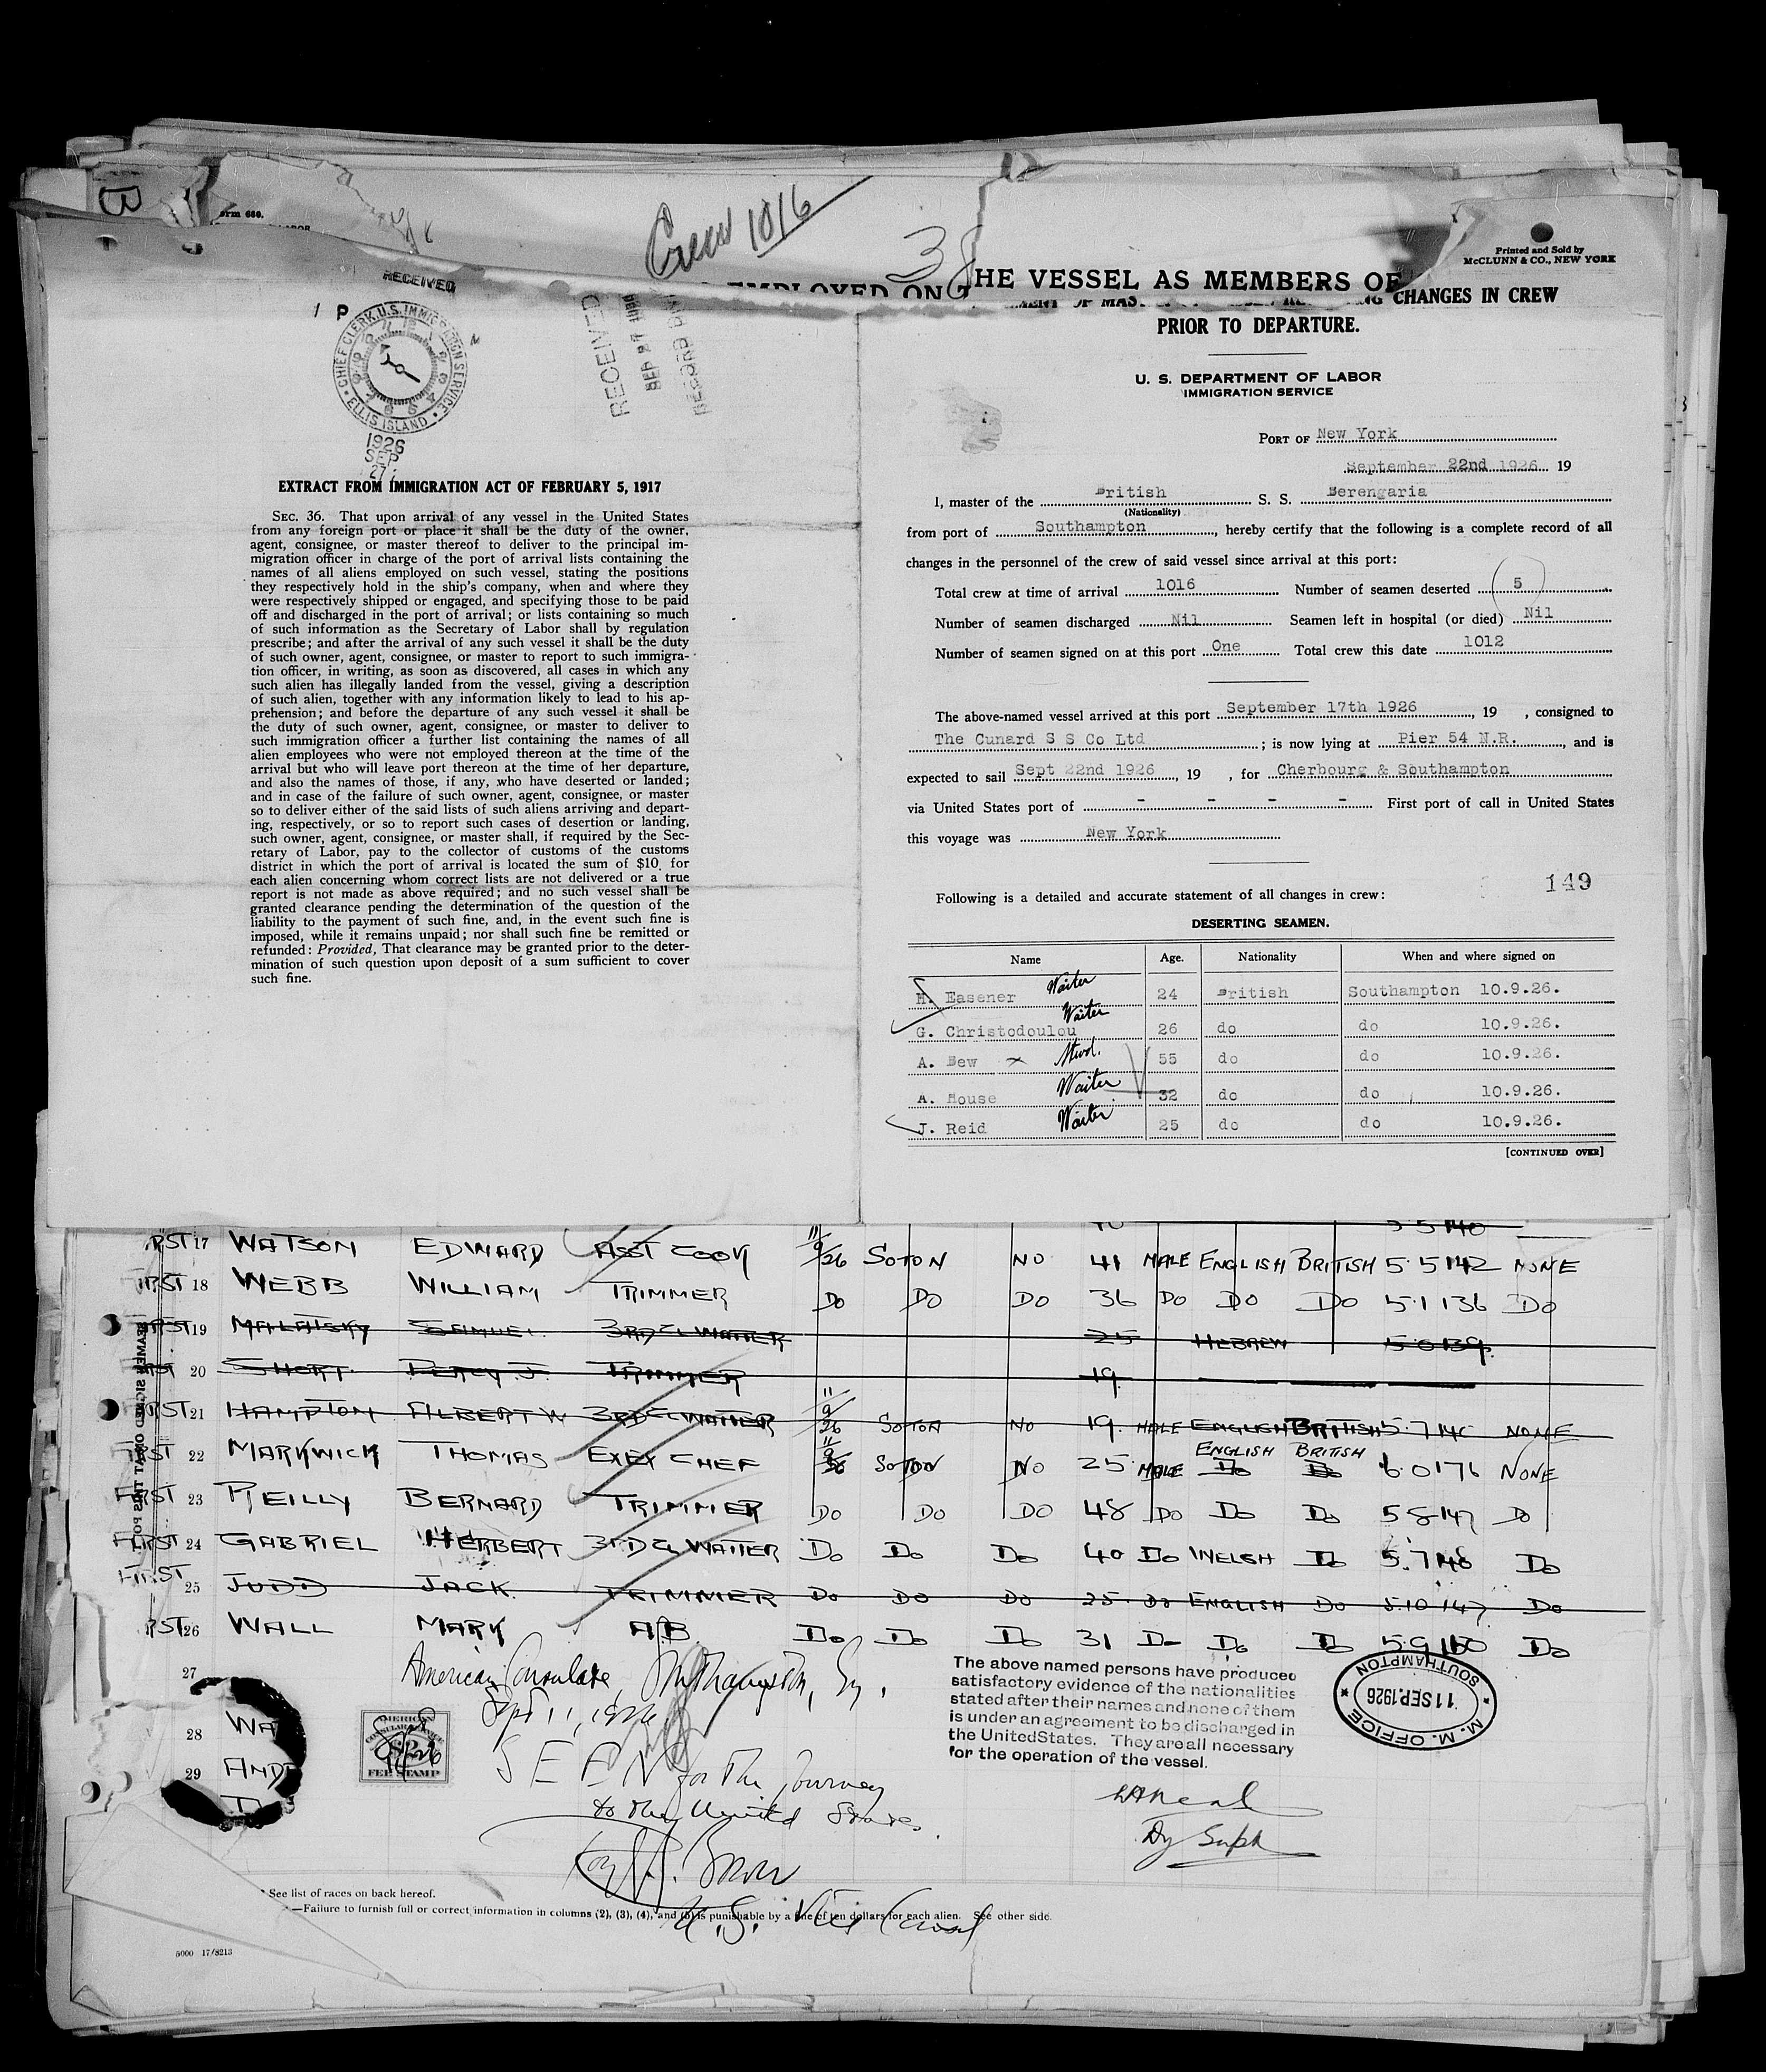 B
Form 680.
Crew 1016
38
Printed and Sold by
McCLUNN & CO., NEW YORK
EMPLOYED ON THE VESSEL AS MEMBERS OF
CHANGES IN CREW
PRIOR TO DEPARTURE.
RECEIVED
1 P
CHIEF CLERK, U.S. IMMIGRATION SERVICE
ELLIS ISLAND
1926
SEP
27
RECEIVED
SEP 27
EXTRACT FROM IMMIGRATION ACT OF FEBRUARY 5, 1917
SEC. 36. That upon arrival of any vessel in the United States
from any foreign port or place it shall be the duty of the owner,
agent, consignee, or master thereof to deliver to the principal im-
migration officer in charge of the port of arrival lists containing the
names of all aliens employed on such vessel, stating the positions
they respectively hold in the ship's company, when and where they
were respectively shipped or engaged, and specifying those to be paid
off and discharged in the port of arrival; or lists containing so much
of such information as the Secretary of Labor shall by regulation
prescribe; and after the arrival of any such vessel it shall be the duty
of such owner, agent, consignee, or master to report to such immigra-
tion officer, in writing, as soon as discovered, all cases in which any
such alien has illegally landed from the vessel, giving a description
of such alien, together with any information likely to lead to his ap-
prehension; and before the departure of any such vessel it shall be
the duty of such owner, agent, consignee, or master to deliver to
such immigration officer a further list containing the names of all
alien employees who were not employed thereon at the time of the
arrival but who will leave port thereon at the time of her departure,
and also the names of those, if any, who have deserted or landed;
and in case of the failure of such owner, agent, consignee, or master
so to deliver either of the said lists of such aliens arriving and depart-
ing, respectively, or so to report such cases of desertion or landing,
such owner, agent, consignee, or master shall, if required by the Sec-
retary of Labor, pay to the collector of customs of the customs
district in which the port of arrival is located the sum of $10 for
each alien concerning whom correct lists are not delivered or a true
report is not made as above required; and no such vessel shall be
granted clearance pending the determination of the question of the
liability to the payment of such fine, and, in the event such fine is
imposed, while it remains unpaid; nor shall such fine be remitted or
refunded: Provided, That clearance may be granted prior to the deter-
mination of such question upon deposit of a sum sufficient to cover
such fine.
U. S. DEPARTMENT OF LABOR
IMMIGRATION SERVICE
PORT OF New York
September 22nd 1926 19
I, master of the British S. S. Berengaria
(Nationality)
from port of Southampton, hereby certify that the following is a complete record of all
changes in the personnel of the crew of said vessel since arrival at this port:
Total crew at time of arrival 1016 Number of seamen deserted 5
Number of seamen discharged Nil Seamen left in hospital (or died) Nil
Number of seamen signed on at this port One Total crew this date 1012
The above-named vessel arrived at this port September 17th 1926, 19 , consigned to
The Cunard S S Co Ltd; is now lying at Pier 54 N.R., and is
expected to sail Sept 22nd 1926, 19 , for Cherbourg & Southampton
via United States port of - - - - First port of call in United States
this voyage was New York
149
Following is a detailed and accurate statement of all changes in crew:
DESERTING SEAMEN.
Name Age. Nationality When and where signed on
H. Easener Waiter 24 British Southampton 10.9.26.
G. Christodoulou Waiter 26 do do 10.9.26.
A. Bew x Stwd. 55 do do 10.9.26.
A. House Waiter 32 do do 10.9.26.
J. Reid Waiter 25 do do 10.9.26.
[CONTINUED OVER]
17 WATSON EDWARD ASST COOK 11/9/26 SOTON NO 41 MALE ENGLISH BRITISH 5.5 142 NONE
18 WEBB WILLIAM TRIMMER DO DO DO 36 DO DO DO 5.1 136 DO
19 MALATSKY SAMUEL 3RD CL WAITER 25 HEBREW 5.0 139
20 SHORT PERCY J. TRIMMER 19
21 HAMPTON ALBERT W 3RD CL WAITER 11/9/26 SOTON NO 19 MALE ENGLISH BRITISH 5.7 NONE
ENGLISH BRITISH
FIRST 22 MARKWICK THOMAS EXEX CHEF 11/9/26 SOTON NO 25 MALE DO DO 6.0 176 NONE
FIRST 23 REILLY BERNARD TRIMMER DO DO DO 48 DO DO DO 5 8 147 DO
FIRST 24 GABRIEL HERBERT 3RD CL WAITER DO DO DO 40 DO WELSH DO 5.7 148 DO
FIRST 25 JUDD JACK TRIMMER DO DO DO 25 DO ENGLISH DO 5.10 147 DO
26 WALL MARK AB DO DO DO 31 DO DO DO 5.9 DO
27
28 WA
29 AND
American Consulate, Southampton, Eng.
Sept 11, 1926
SEEN for the journey
to the United States.
U.S. Vice Consul
AMERICAN
CONSULAR SERVICE
$2
FEE STAMP
The above named persons have produced
satisfactory evidence of the nationalities
stated after their names and none of them
is under an agreement to be discharged in
the United States. They are all necessary
for the operation of the vessel.
Dy Supt
M. M. OFFICE
11 SEP. 1926
SOUTHAMPTON
* See list of races on back hereof.
—Failure to furnish full or correct information in columns (2), (3), (4), and (5) is punishable by a fine of ten dollars for each alien. See other side.
5000 17/8213